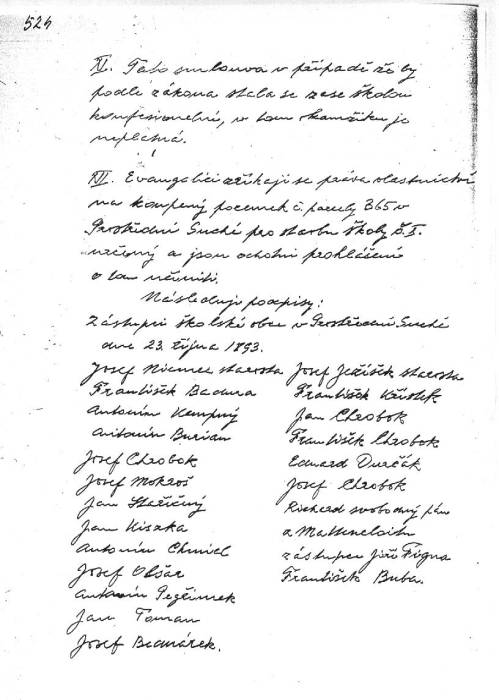 524
XI. Tato smlouva v případě že by
podle zákona stala se zese školou
konfesionelní, v tom okamžiku je
neplatná.
XII. Evangelíci zříkají se práva vlastnictví
na koupený pozemek č. parcely 365 v
Prostřední Suché pro stavbu školy č. I.
určený a jsou ochotni prohlášení
o tom učiniti.
Následují podpisy:
Zástupci školské obce v Prostřední Suché
dne 23. října 1893.
Josef Niemec starosta
František Badura
Antonín Kempný
Antonín Burian
Josef Chrobok
Josef Mokroš
Jan Stařičný
Jan Kiszka
Antonín Chmiel
Josef Olšar
Antonín Pežimek
Jan Toman
Josef Bednárek.
Josef Ježíšek starosta
František Křístek
Jan Chrobok
František Chrobok
Eduard Durčák
Josef Chrobok
Richard svobodný pán
z Mattencloitu
zástupce Jiří Figna
František Buba.